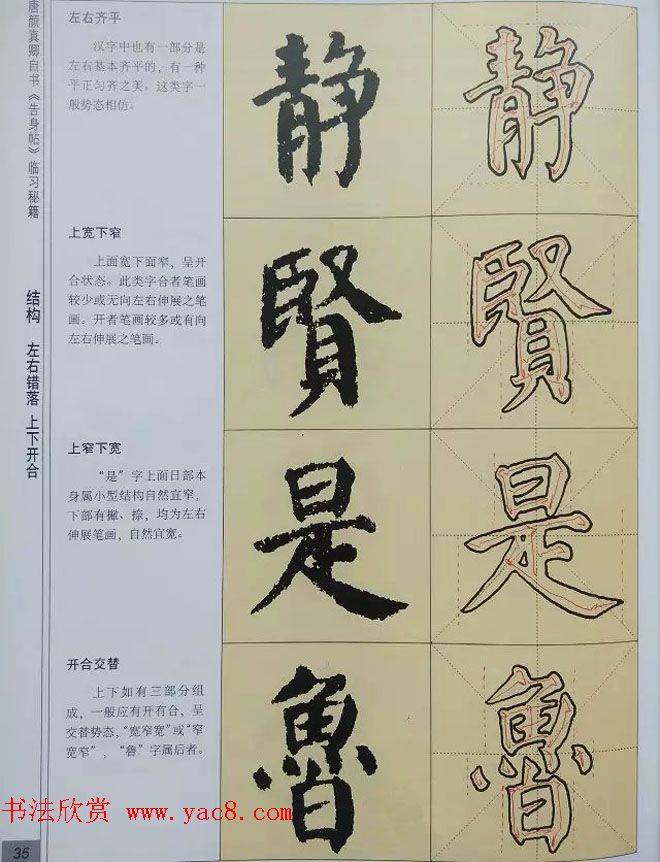 唐颜真卿自书《告身帖》临习秘籍
结构 左右错落 上下开合
左右齐平
汉字中也有一部分是
左右基本齐平的，有一种
平正匀齐之美。这类字一
般势态相仿。
静 静
上宽下窄
上面宽下面窄，呈开
合状态。此类字合者笔画
较少或无向左右伸展之笔
画。开者笔画较多或有向
左右伸展之笔画。
賢 賢
上窄下宽
“是”字上面日部本
身属小型结构自然宜窄，
下部有撇、捺，均为左右
伸展笔画，自然宜宽。
是 是
开合交替
上下如有三部分组
成，一般应有开有合，呈
交替势态，“宽窄宽”或“窄
宽窄”，“魯”字属后者。
魯 魯
书法欣赏 www.yac8.com
35